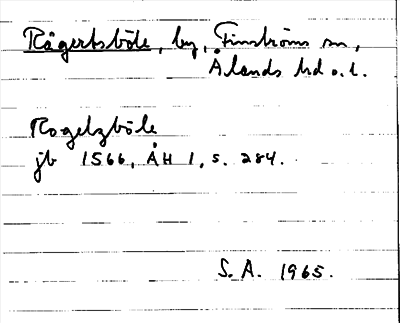 Rågertsböle, by, Finströms sn,
Ålands hd o. l.
Rogelzböle
jb 1566, ÅH 1, s. 284.
S. A. 1965.